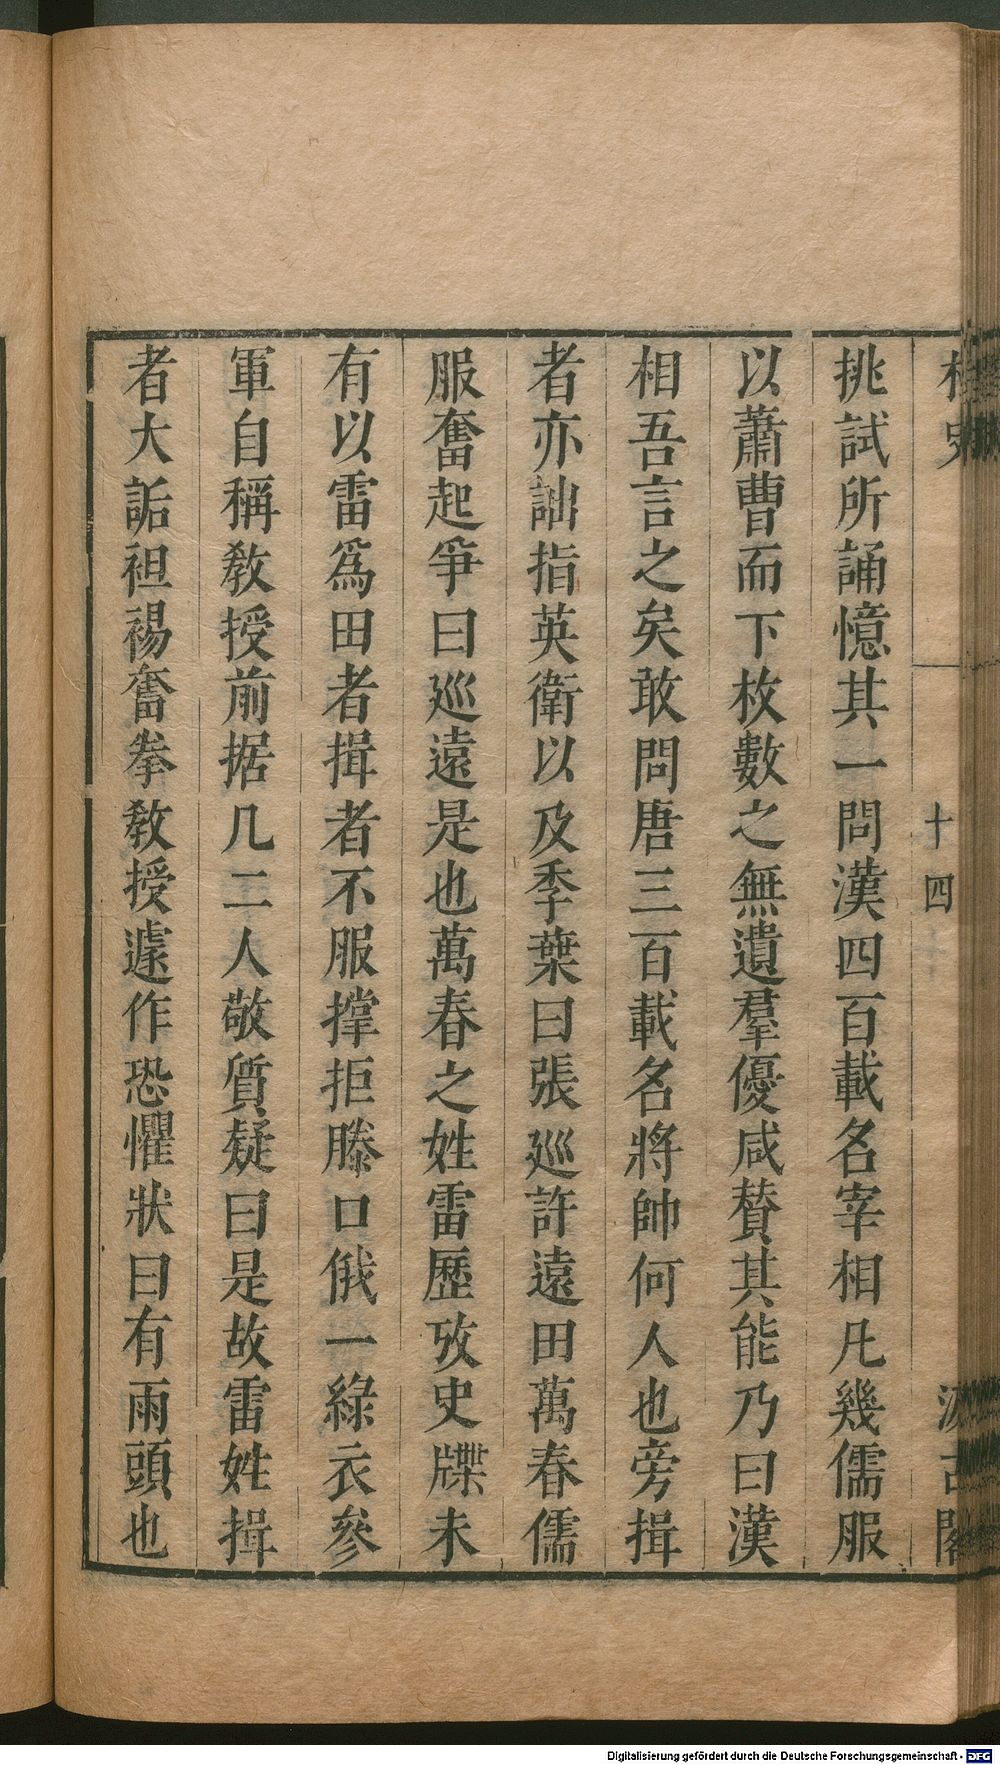 桯史
十四
汲古閣
挑試所誦憶其一問漢四百載名宰相凡幾儒服
以蕭曹而下枚數之無遺羣優咸贊其能乃曰漢
相吾言之矣敢問唐三百載名將帥何人也旁揖
者亦詘指英衛以及季葉曰張巡許遠田萬春儒
服奮起爭曰巡遠是也萬春之姓雷歷攷史牒未
有以雷爲田者揖者不服撑拒滕口俄一綠衣參
軍自稱敎授前据几二人敬質疑曰是故雷姓揖
者大詬袒裼奮拳敎授遽作恐懼狀曰有雨頭也
Digitalisierung gefördert durch die Deutsche Forschungsgemeinschaft - DFG